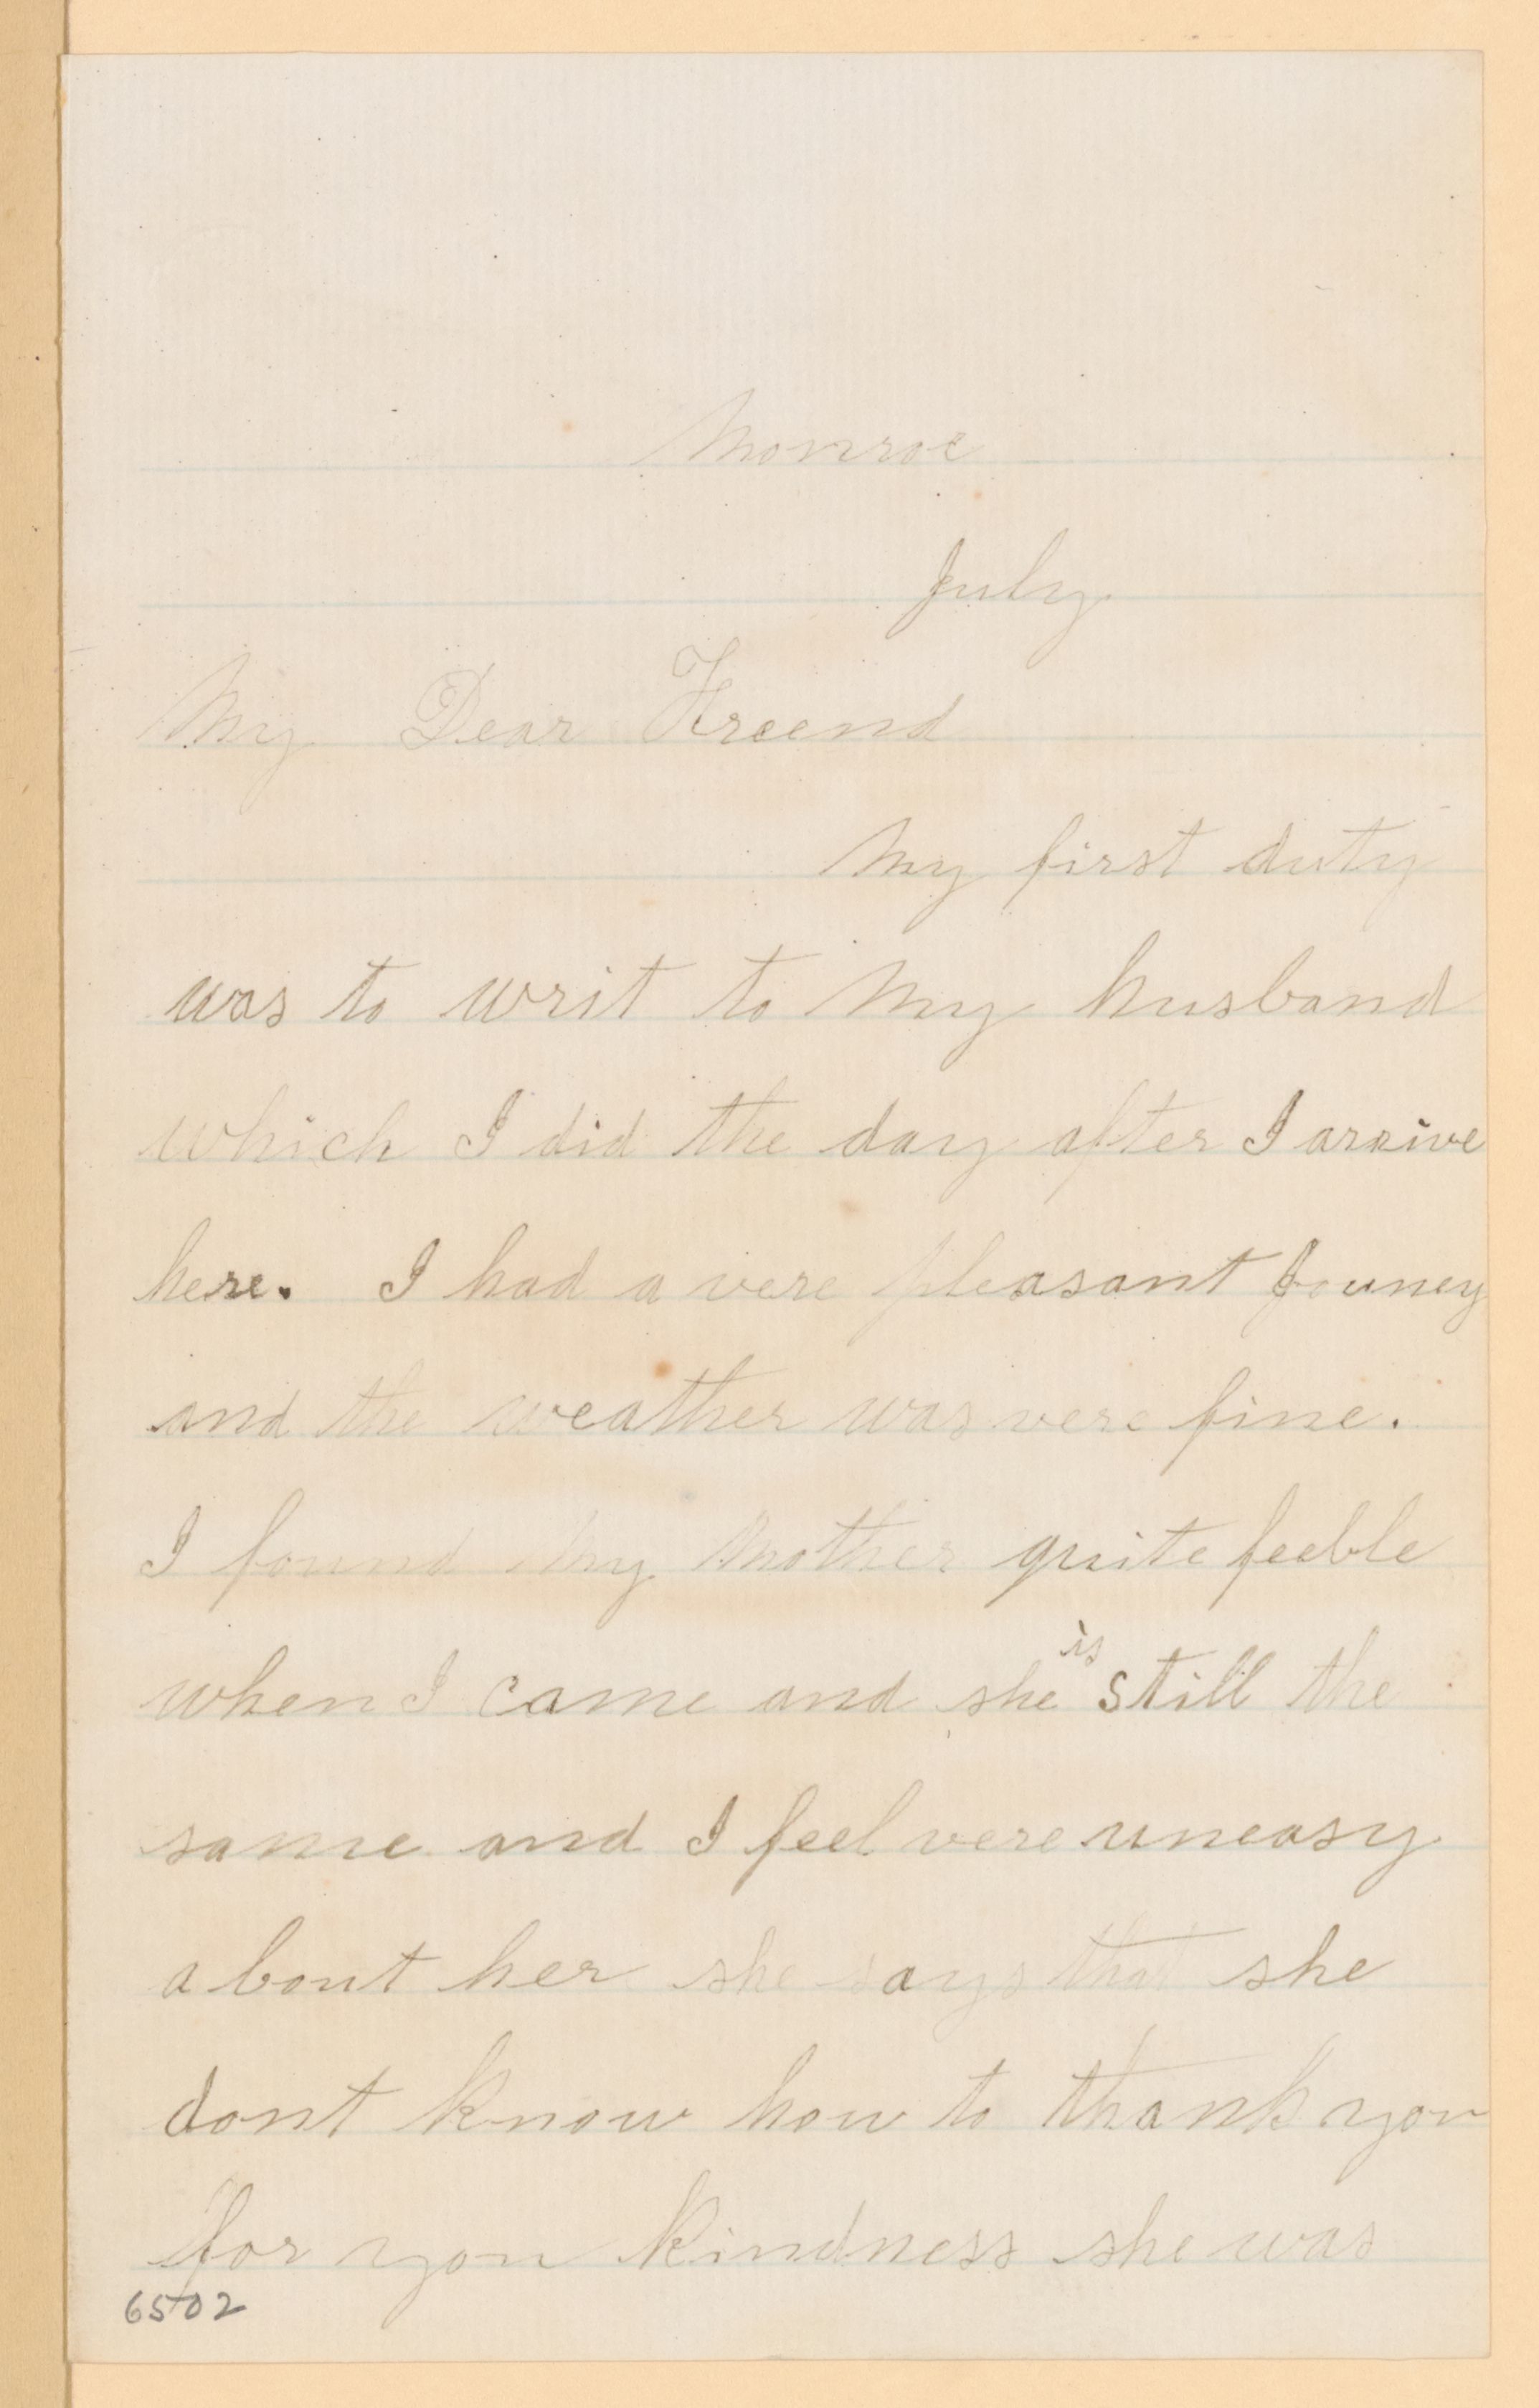 Monroe
July
My Dear Freend
My first duty
was to writ to My husband
which I did the day after I arrive
here. I had a vere pleasant Jouney
and the weather was vere fine.
I found My Mother quite feeble
when I came and she is still the
same and I feel vere uneasy
a bout her she says that she
dont know how to thank you
for you kindness she was
6502